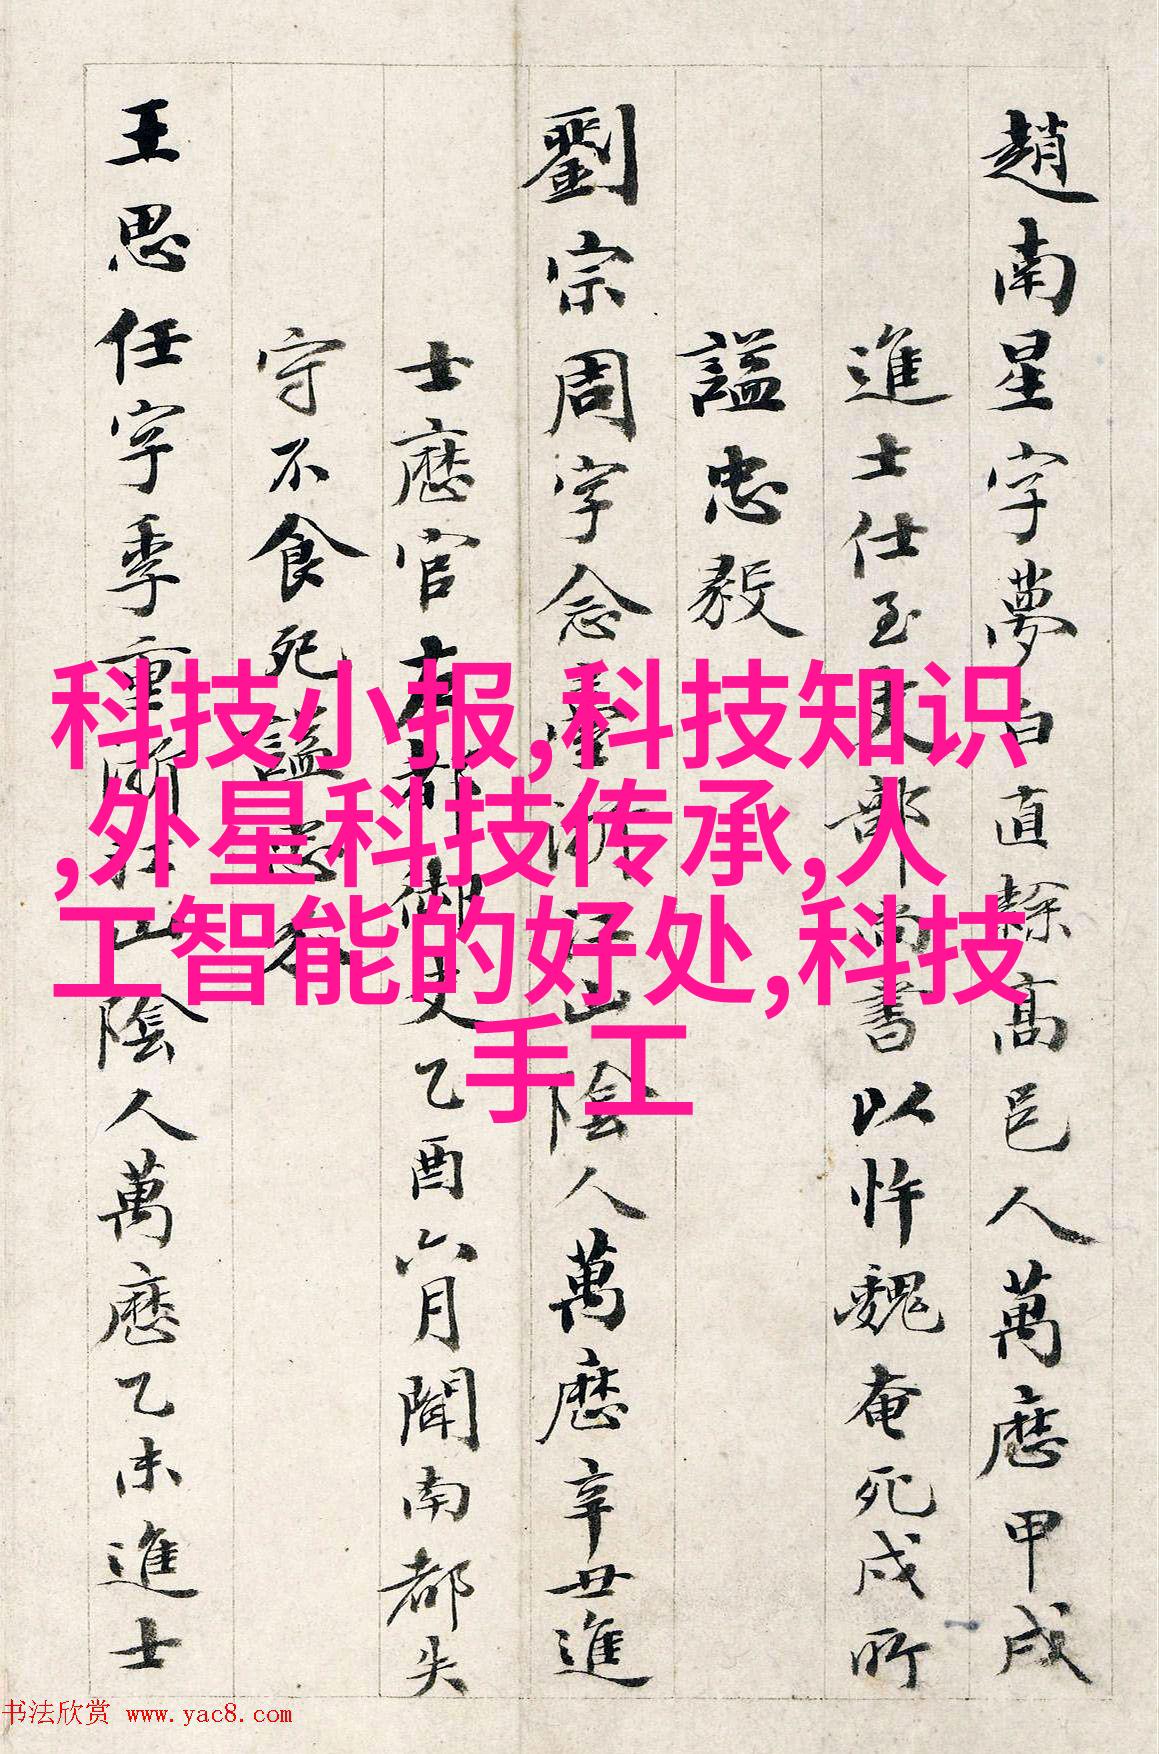 趙南星字夢白直隸高邑人萬曆甲戌
進士仕至吏部尚書以忤魏奄死戍所
謚忠毅
劉宗周字念臺浙江山陰人萬曆辛丑進
士歷官左都御史乙酉六月聞南都失
守不食死謚忠
王思任字季重浙江山陰人萬曆乙未進士
科技小报,科技知识
,外星科技传承,人
工智能的好处,科技
手工
书法欣赏 www.yac8.com